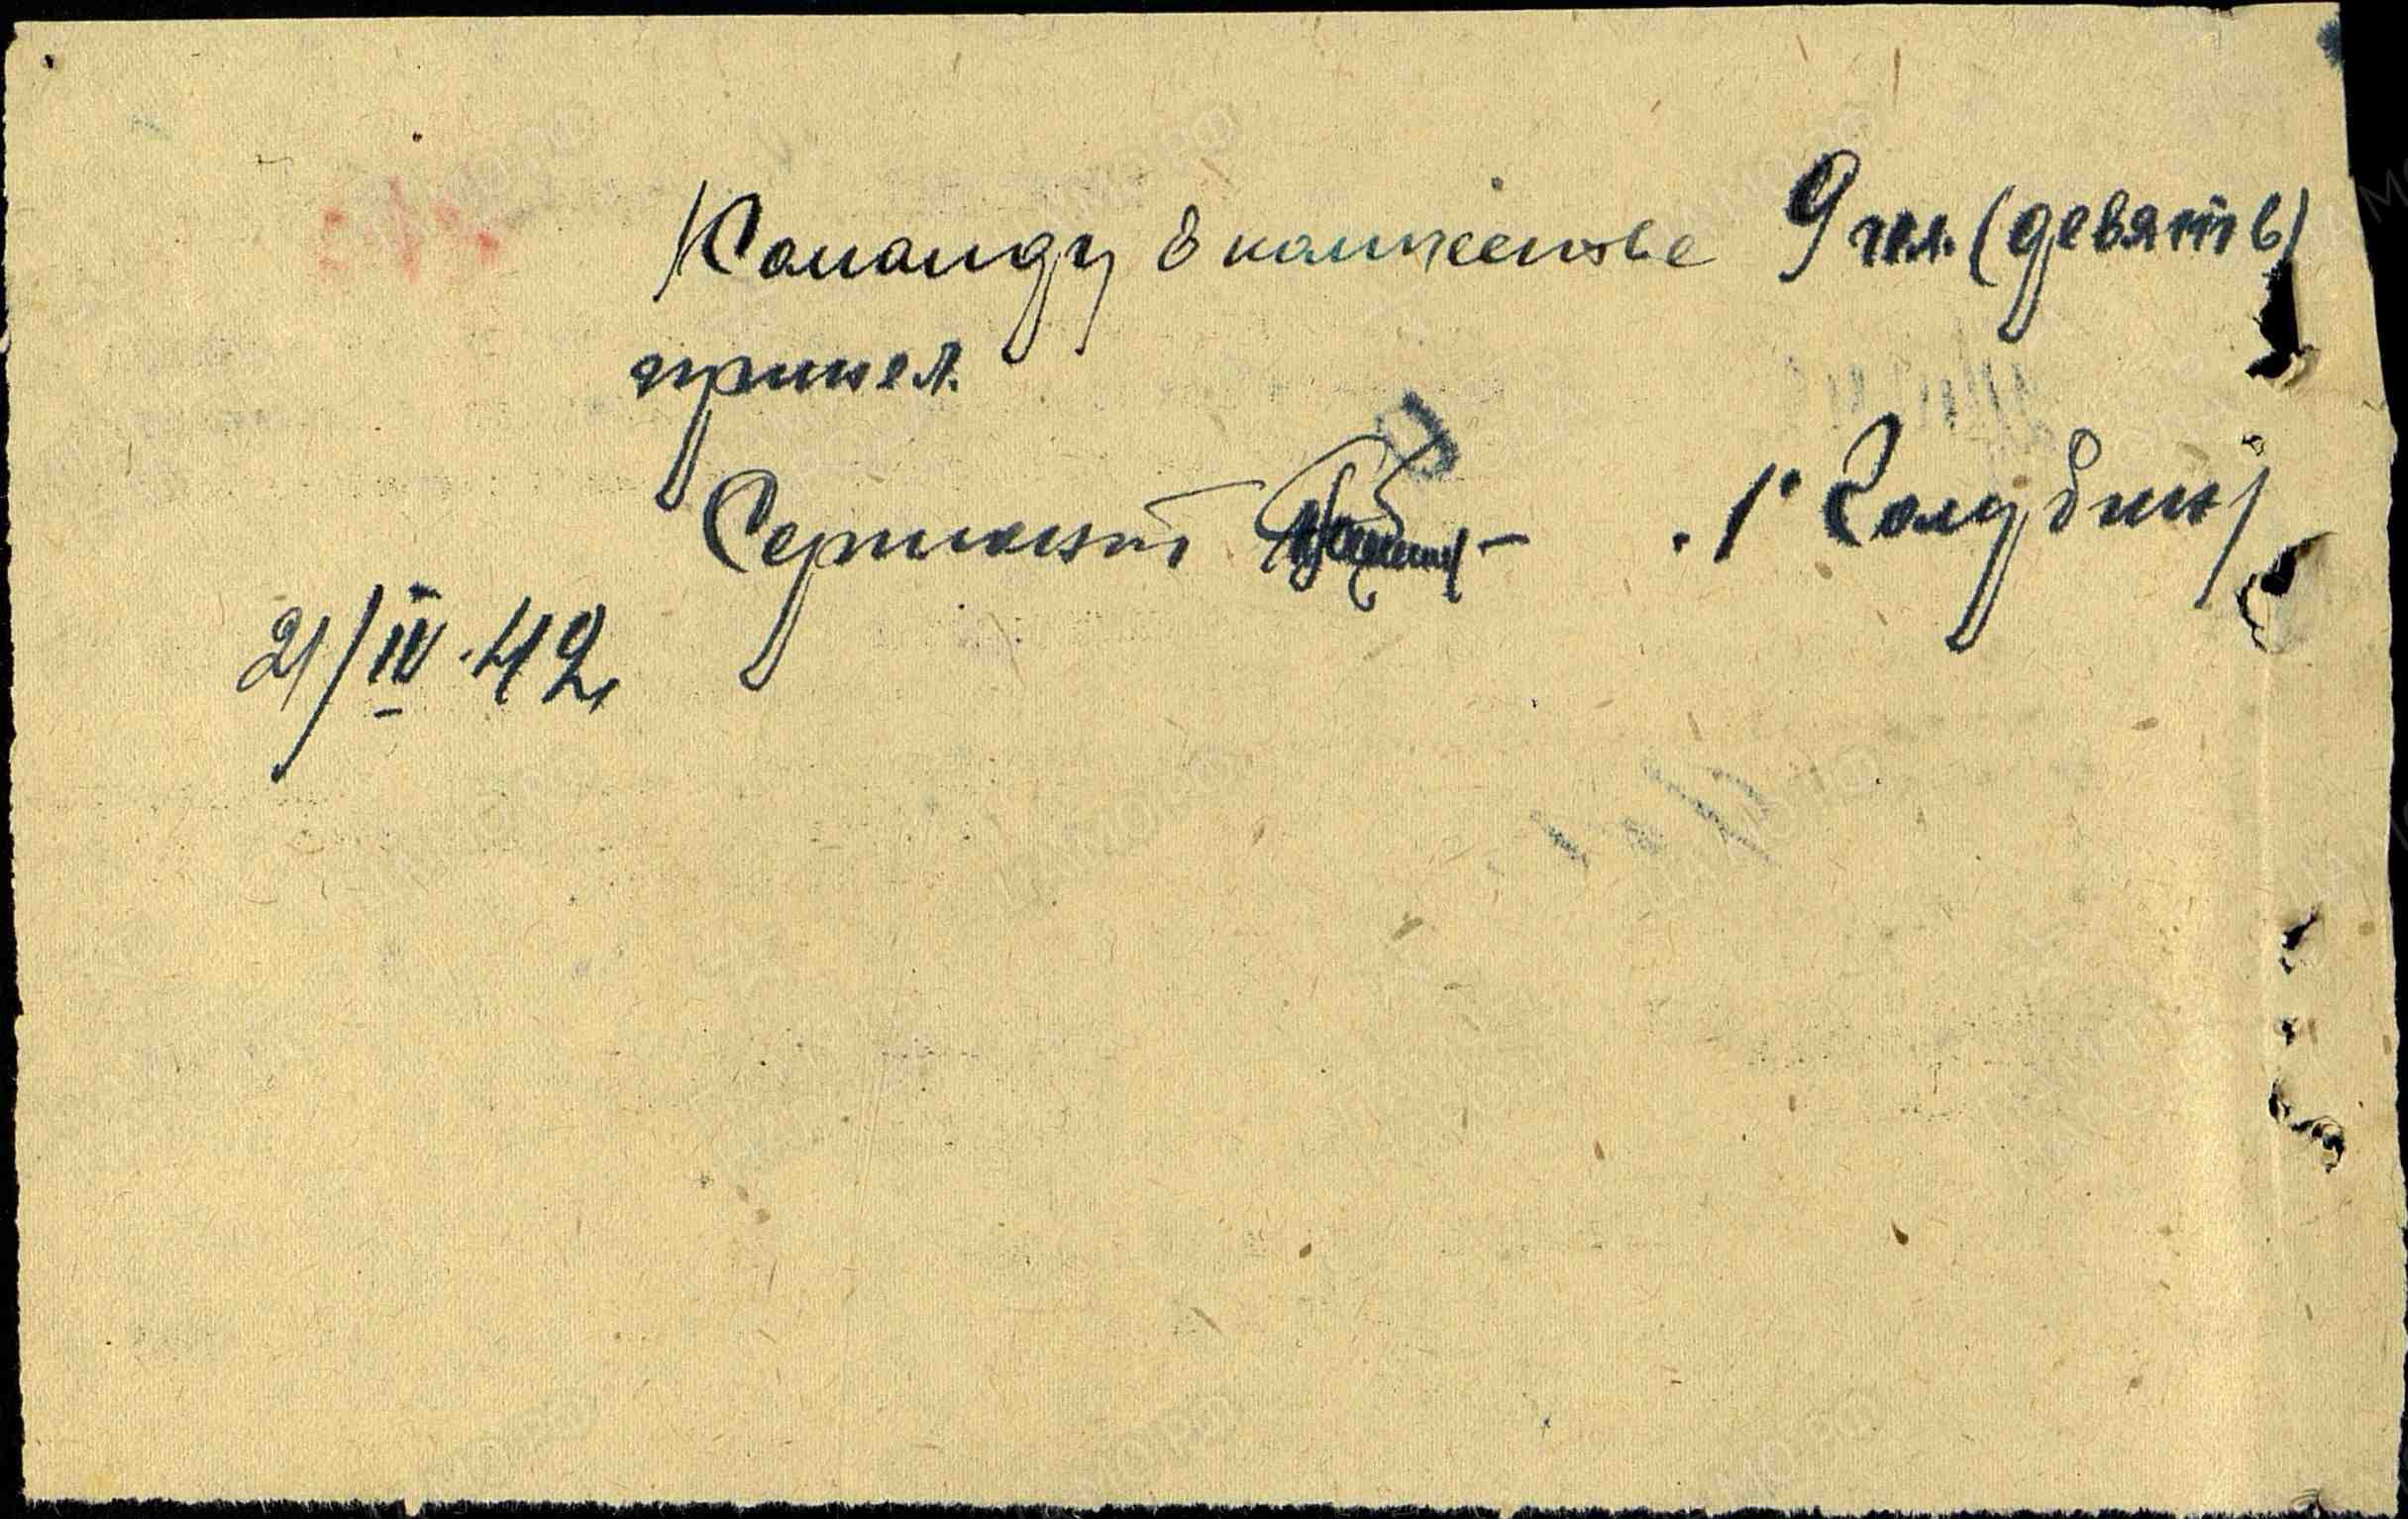 Команду в количестве 9 чел. (девять)
принял.
Сержант /Голубкин/
21/IV-42